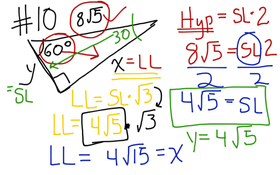 #10
8√5
60°
30
y
=SL
x = LL
LL = SL·√3
LL = 4√5·√3
LL = 4√15 = x
Hyp = SL·2
8√5 = SL·2
2 2
4√5 = SL
y = 4√5